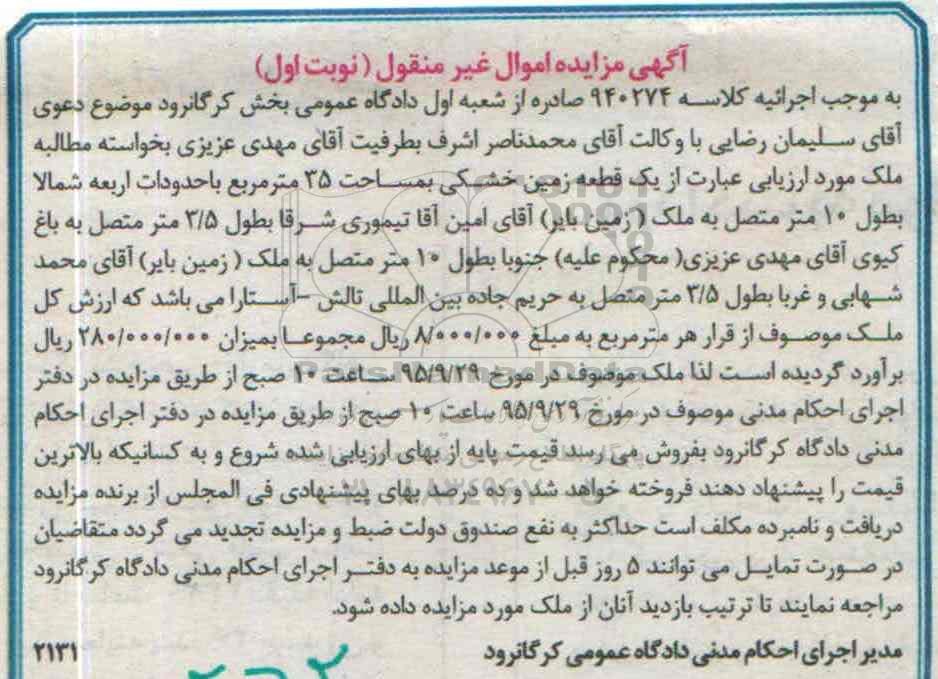 آگهی مزایده اموال غیر منقول (نوبت اول)
به موجب اجرائیه کلاسه ۹۴۰۲۷۴ صادره از شعبه اول دادگاه عمومی بخش کرگانرود موضوع دعوی
آقای سلیمان رضایی با وکالت آقای محمدناصر اشرف بطرفیت آقای مهدی عزیزی بخواسته مطالبه
ملک مورد ارزیابی عبارت از یک قطعه زمین خشکی بمساحت ۳۵ مترمربع باحدودات اربعه شمالا
بطول ۱۰ متر متصل به ملک (زمین بایر) آقای امین آقا تیموری شرقا بطول ۳/۵ متر متصل به باغ
کیوی آقای مهدی عزیزی( محکوم علیه) جنوبا بطول ۱۰ متر متصل به ملک ( زمین بایر) آقای محمد
شهابی و غربا بطول ۳/۵ متر متصل به حریم جاده بین المللی تالش –آستارا می باشد که ارزش کل
ملک موصوف از قرار هر مترمربع به مبلغ ۸/۰۰۰/۰۰۰ ریال مجموعا بمیزان ۲۸۰/۰۰۰/۰۰۰ ریال
برآورد گردیده است لذا ملک موصوف در مورخ ۹۵/۹/۲۹ ساعت ۱۰ صبح از طریق مزایده در دفتر
اجرای احکام مدنی موصوف در مورخ ۹۵/۹/۲۹ ساعت ۱۰ صبح از طریق مزایده در دفتر اجرای احکام
مدنی دادگاه کرگانرود بفروش می رسد قیمت پایه از بهای ارزیابی شده شروع و به کسانیکه بالاترین
قیمت را پیشنهاد دهند فروخته خواهد شد و ده درصد بهای پیشنهادی فی المجلس از برنده مزایده
دریافت و نامبرده مکلف است حداکثر به نفع صندوق دولت ضبط و مزایده تجدید می گردد متقاضیان
در صورت تمایل می توانند ۵ روز قبل از موعد مزایده به دفتر اجرای احکام مدنی دادگاه کرگانرود
مراجعه نمایند تا ترتیب بازدید آنان از ملک مورد مزایده داده شود.
مدیر اجرای احکام مدنی دادگاه عمومی کرگانرود ۲۱۳۱